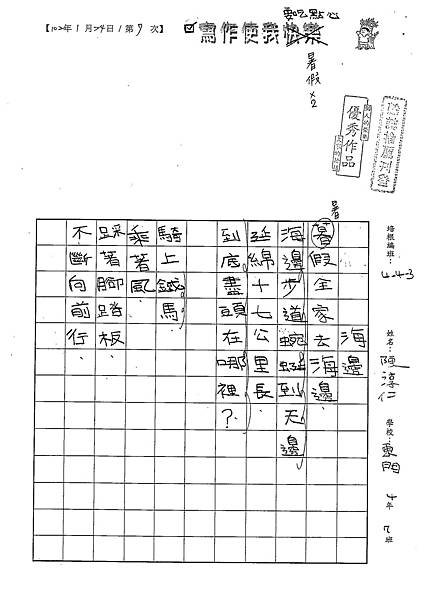 要吃點心
【102年1月24日/第9次】
寫作使我快樂
暑假x2
優秀作品
暑
培根編班：443
姓名：陳湋仁
學校：東門
4年7班
海邊
暮假全家去海邊
海邊十步道蜿蜒到天邊，
延綿七十七公里長，
到底盡頭在哪裡？
騎上鐵馬，
乘著風，
踩著腳踏板，
不斷向前行。